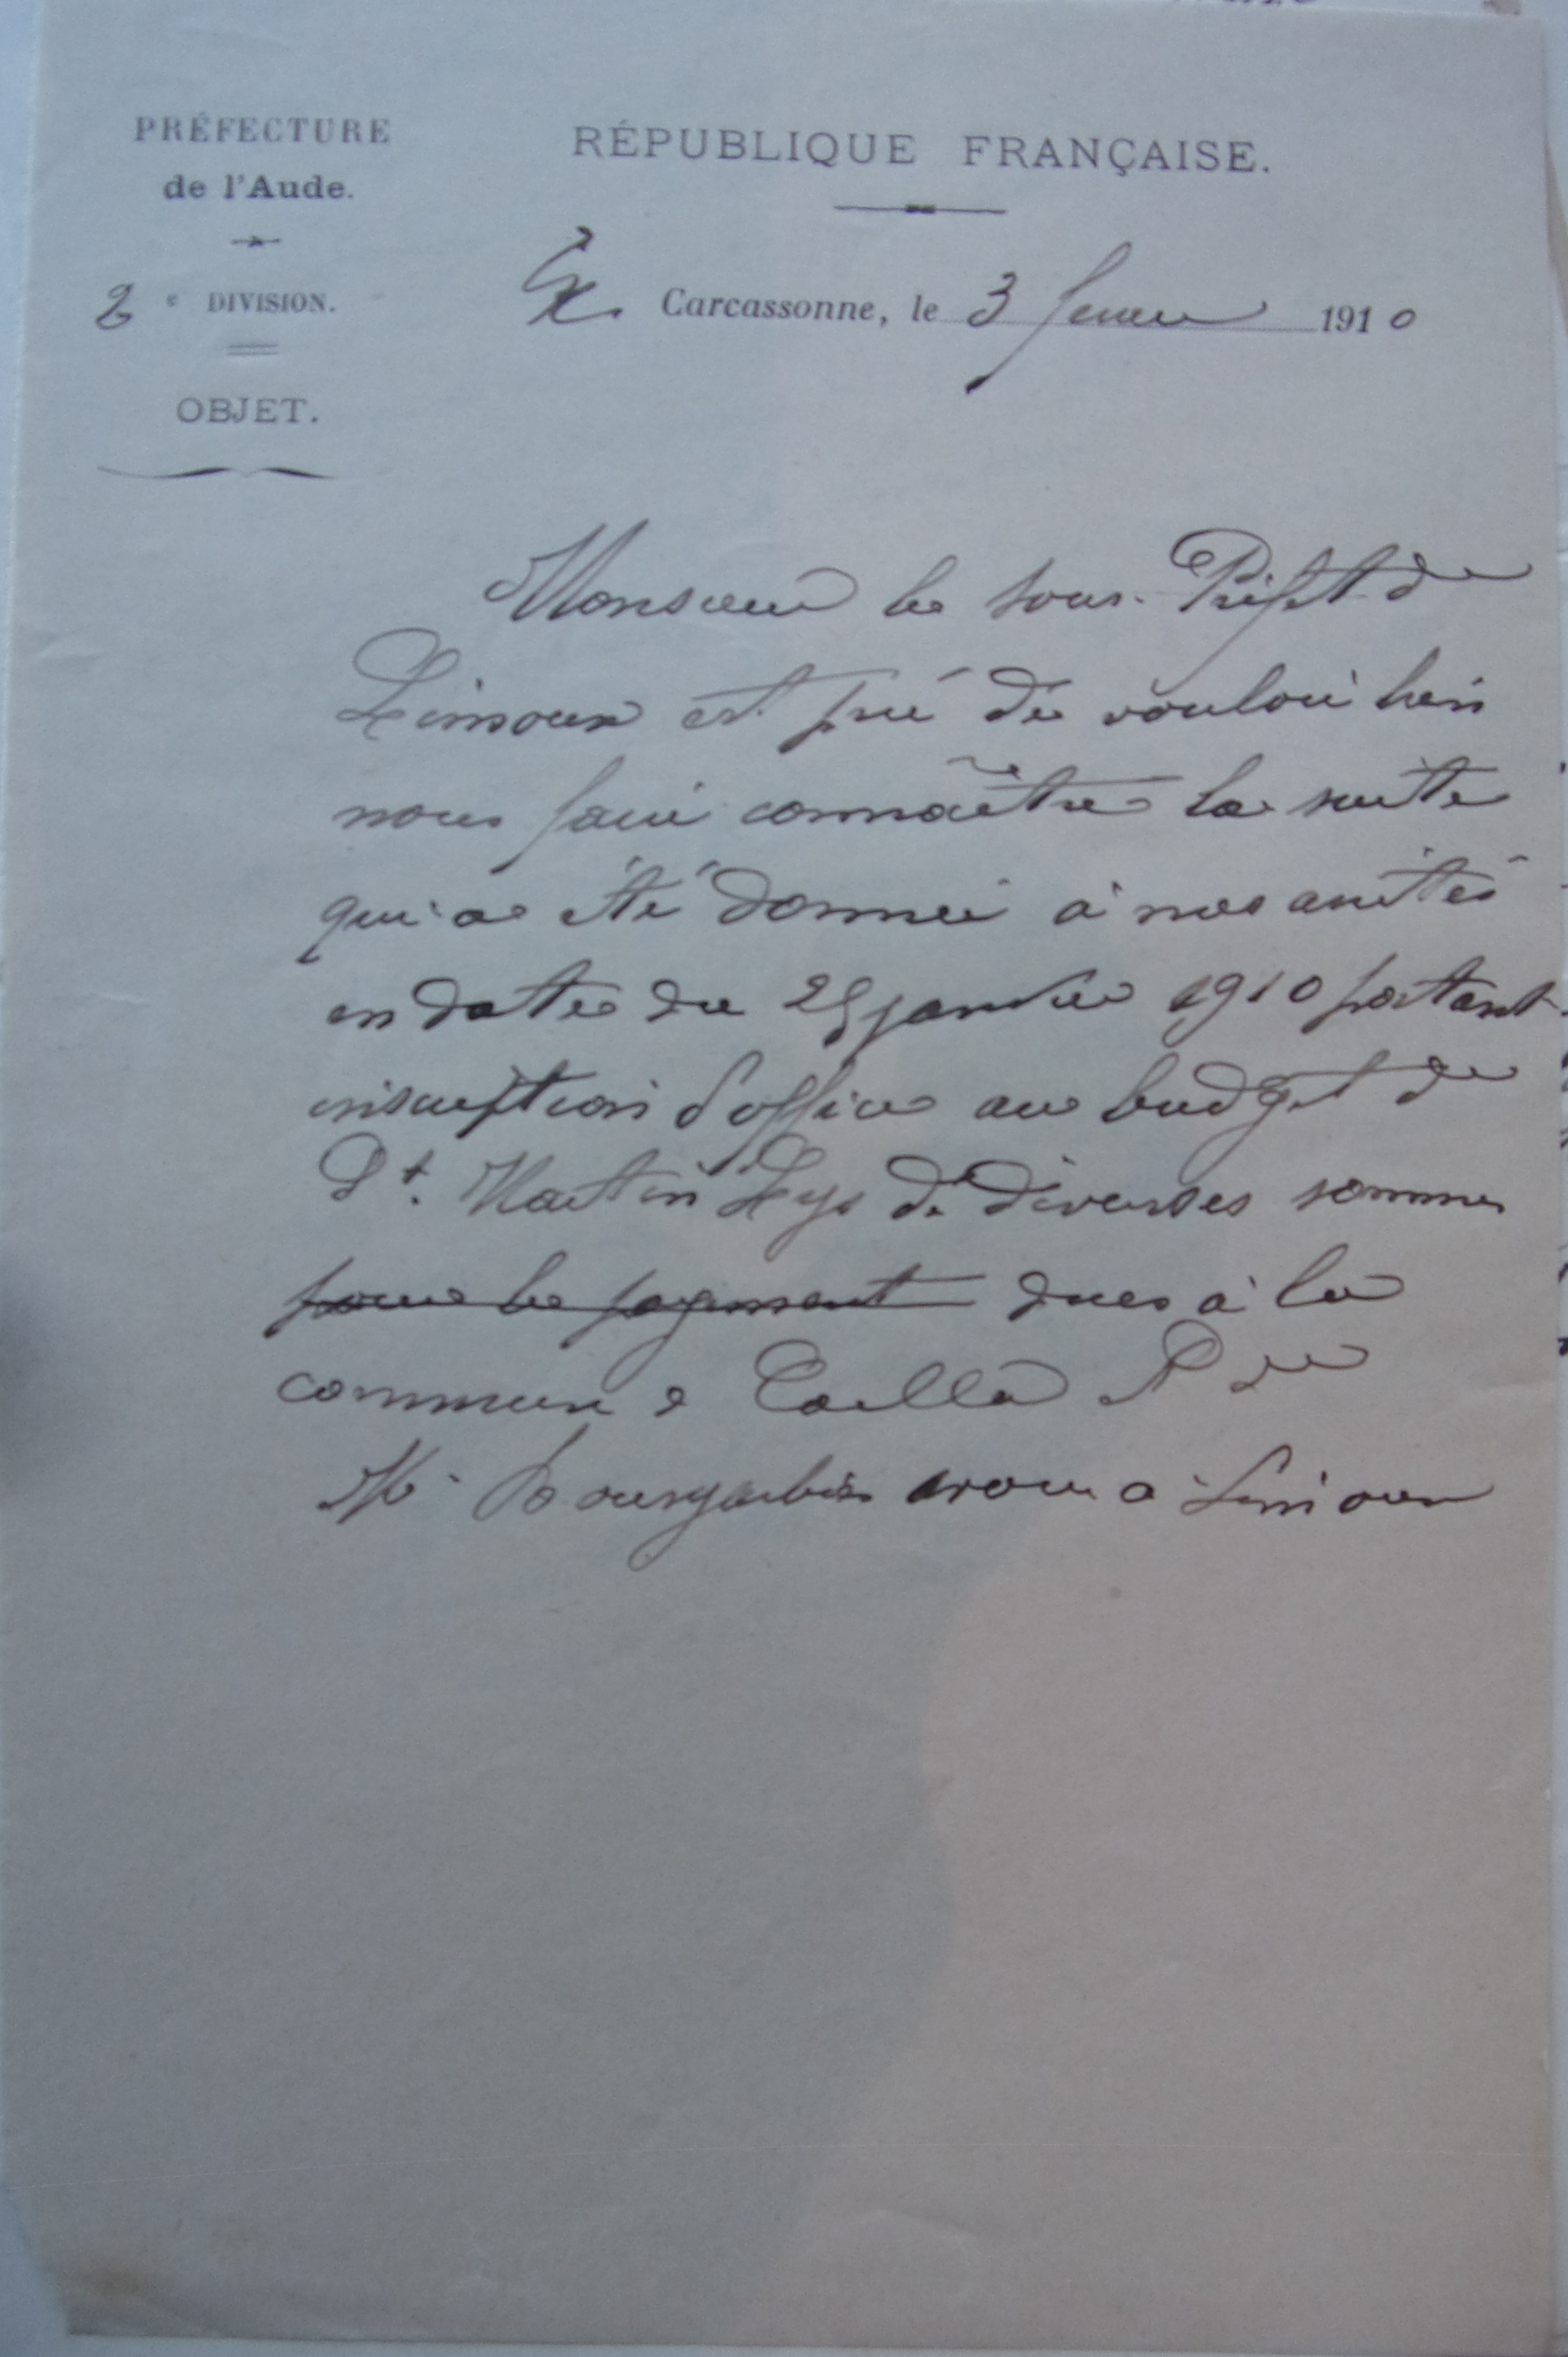 PRÉFECTURE
de l'Aude.
2e DIVISION.
OBJET.
RÉPUBLIQUE FRANÇAISE.
Carcassonne, le 3 février 1910
Monsieur le Sous-Préfet de
Limoux est prié de vouloir bien
nous faire connaître la suite
qui a été donnée à nos arrêtés
en date du 25 janvier 1910 portant
inscription d'office au budget de
St. Martin Lys de diverses sommes
pour le payement dues à la
commune de Cailla
Mr avoué à Limoux